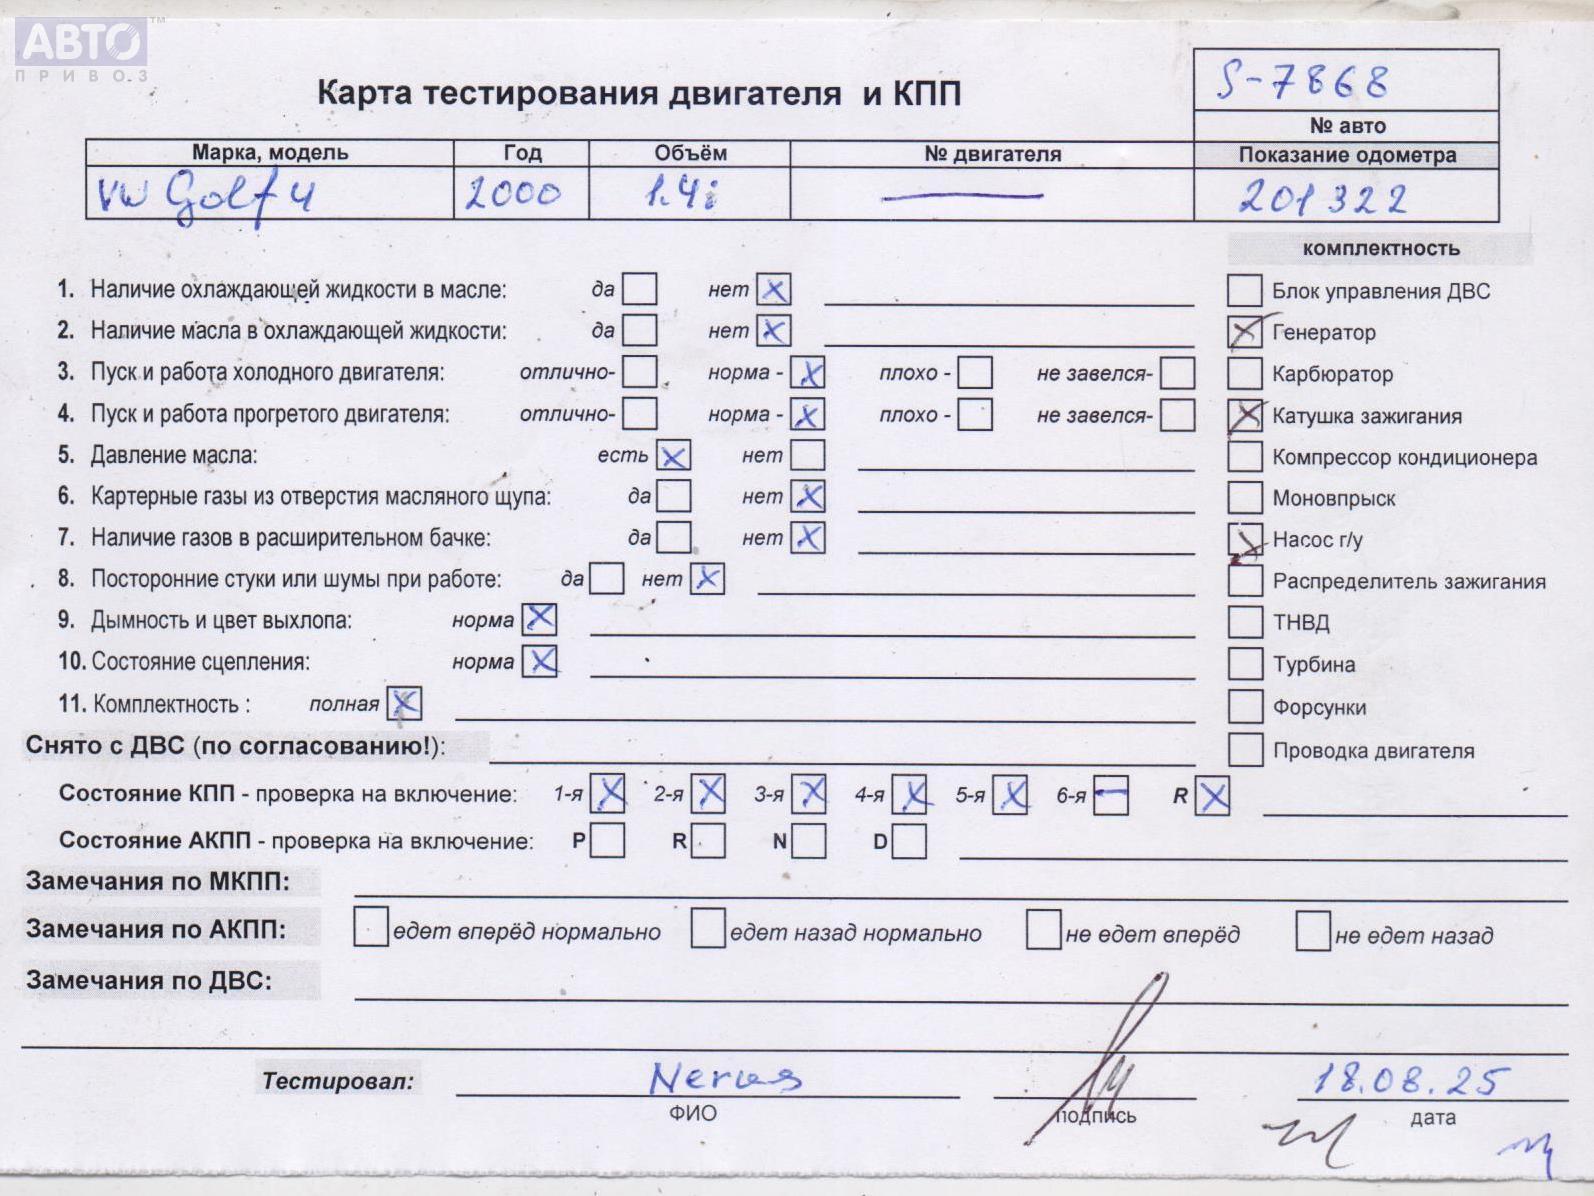 АВТО™
ПРИВОЗ
Карта тестирования двигателя и КПП
S-7868
№ авто
Марка, модель Год Объём № двигателя Показание одометра
VW Golf 4 2000 1.4i — 201322
комплектность
1. Наличие охлаждающей жидкости в масле: да нет X
Блок управления ДВС
2. Наличие масла в охлаждающей жидкости: да нет X
X Генератор
3. Пуск и работа холодного двигателя: отлично- норма - X плохо - не завелся-
Карбюратор
4. Пуск и работа прогретого двигателя: отлично- норма - X плохо - не завелся-
X Катушка зажигания
5. Давление масла: есть X нет
Компрессор кондиционера
6. Картерные газы из отверстия масляного щупа: да нет X
Моновпрыск
7. Наличие газов в расширительном бачке: да нет X
X Насос г/у
8. Посторонние стуки или шумы при работе: да нет X
Распределитель зажигания
9. Дымность и цвет выхлопа: норма X
ТНВД
10. Состояние сцепления: норма X
Турбина
11. Комплектность : полная X
Форсунки
Снято с ДВС (по согласованию!):
Проводка двигателя
Состояние КПП - проверка на включение: 1-я X 2-я X 3-я X 4-я X 5-я X 6-я — R X
Состояние АКПП - проверка на включение: P R N D
Замечания по МКПП:
Замечания по АКПП: едет вперёд нормально едет назад нормально не едет вперёд не едет назад
Замечания по ДВС:
Тестировал: 18.08.25
ФИО подпись дата